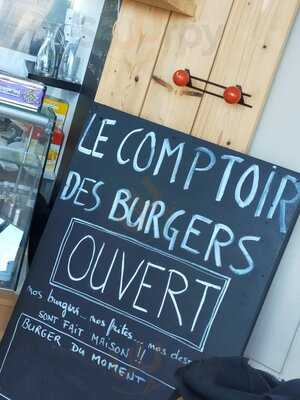 LE COMPTOIR
DES BURGERS
OUVERT
nos burgers... nos frites... nos
SONT FAIT MAISON !!
BURGER DU MOMENT